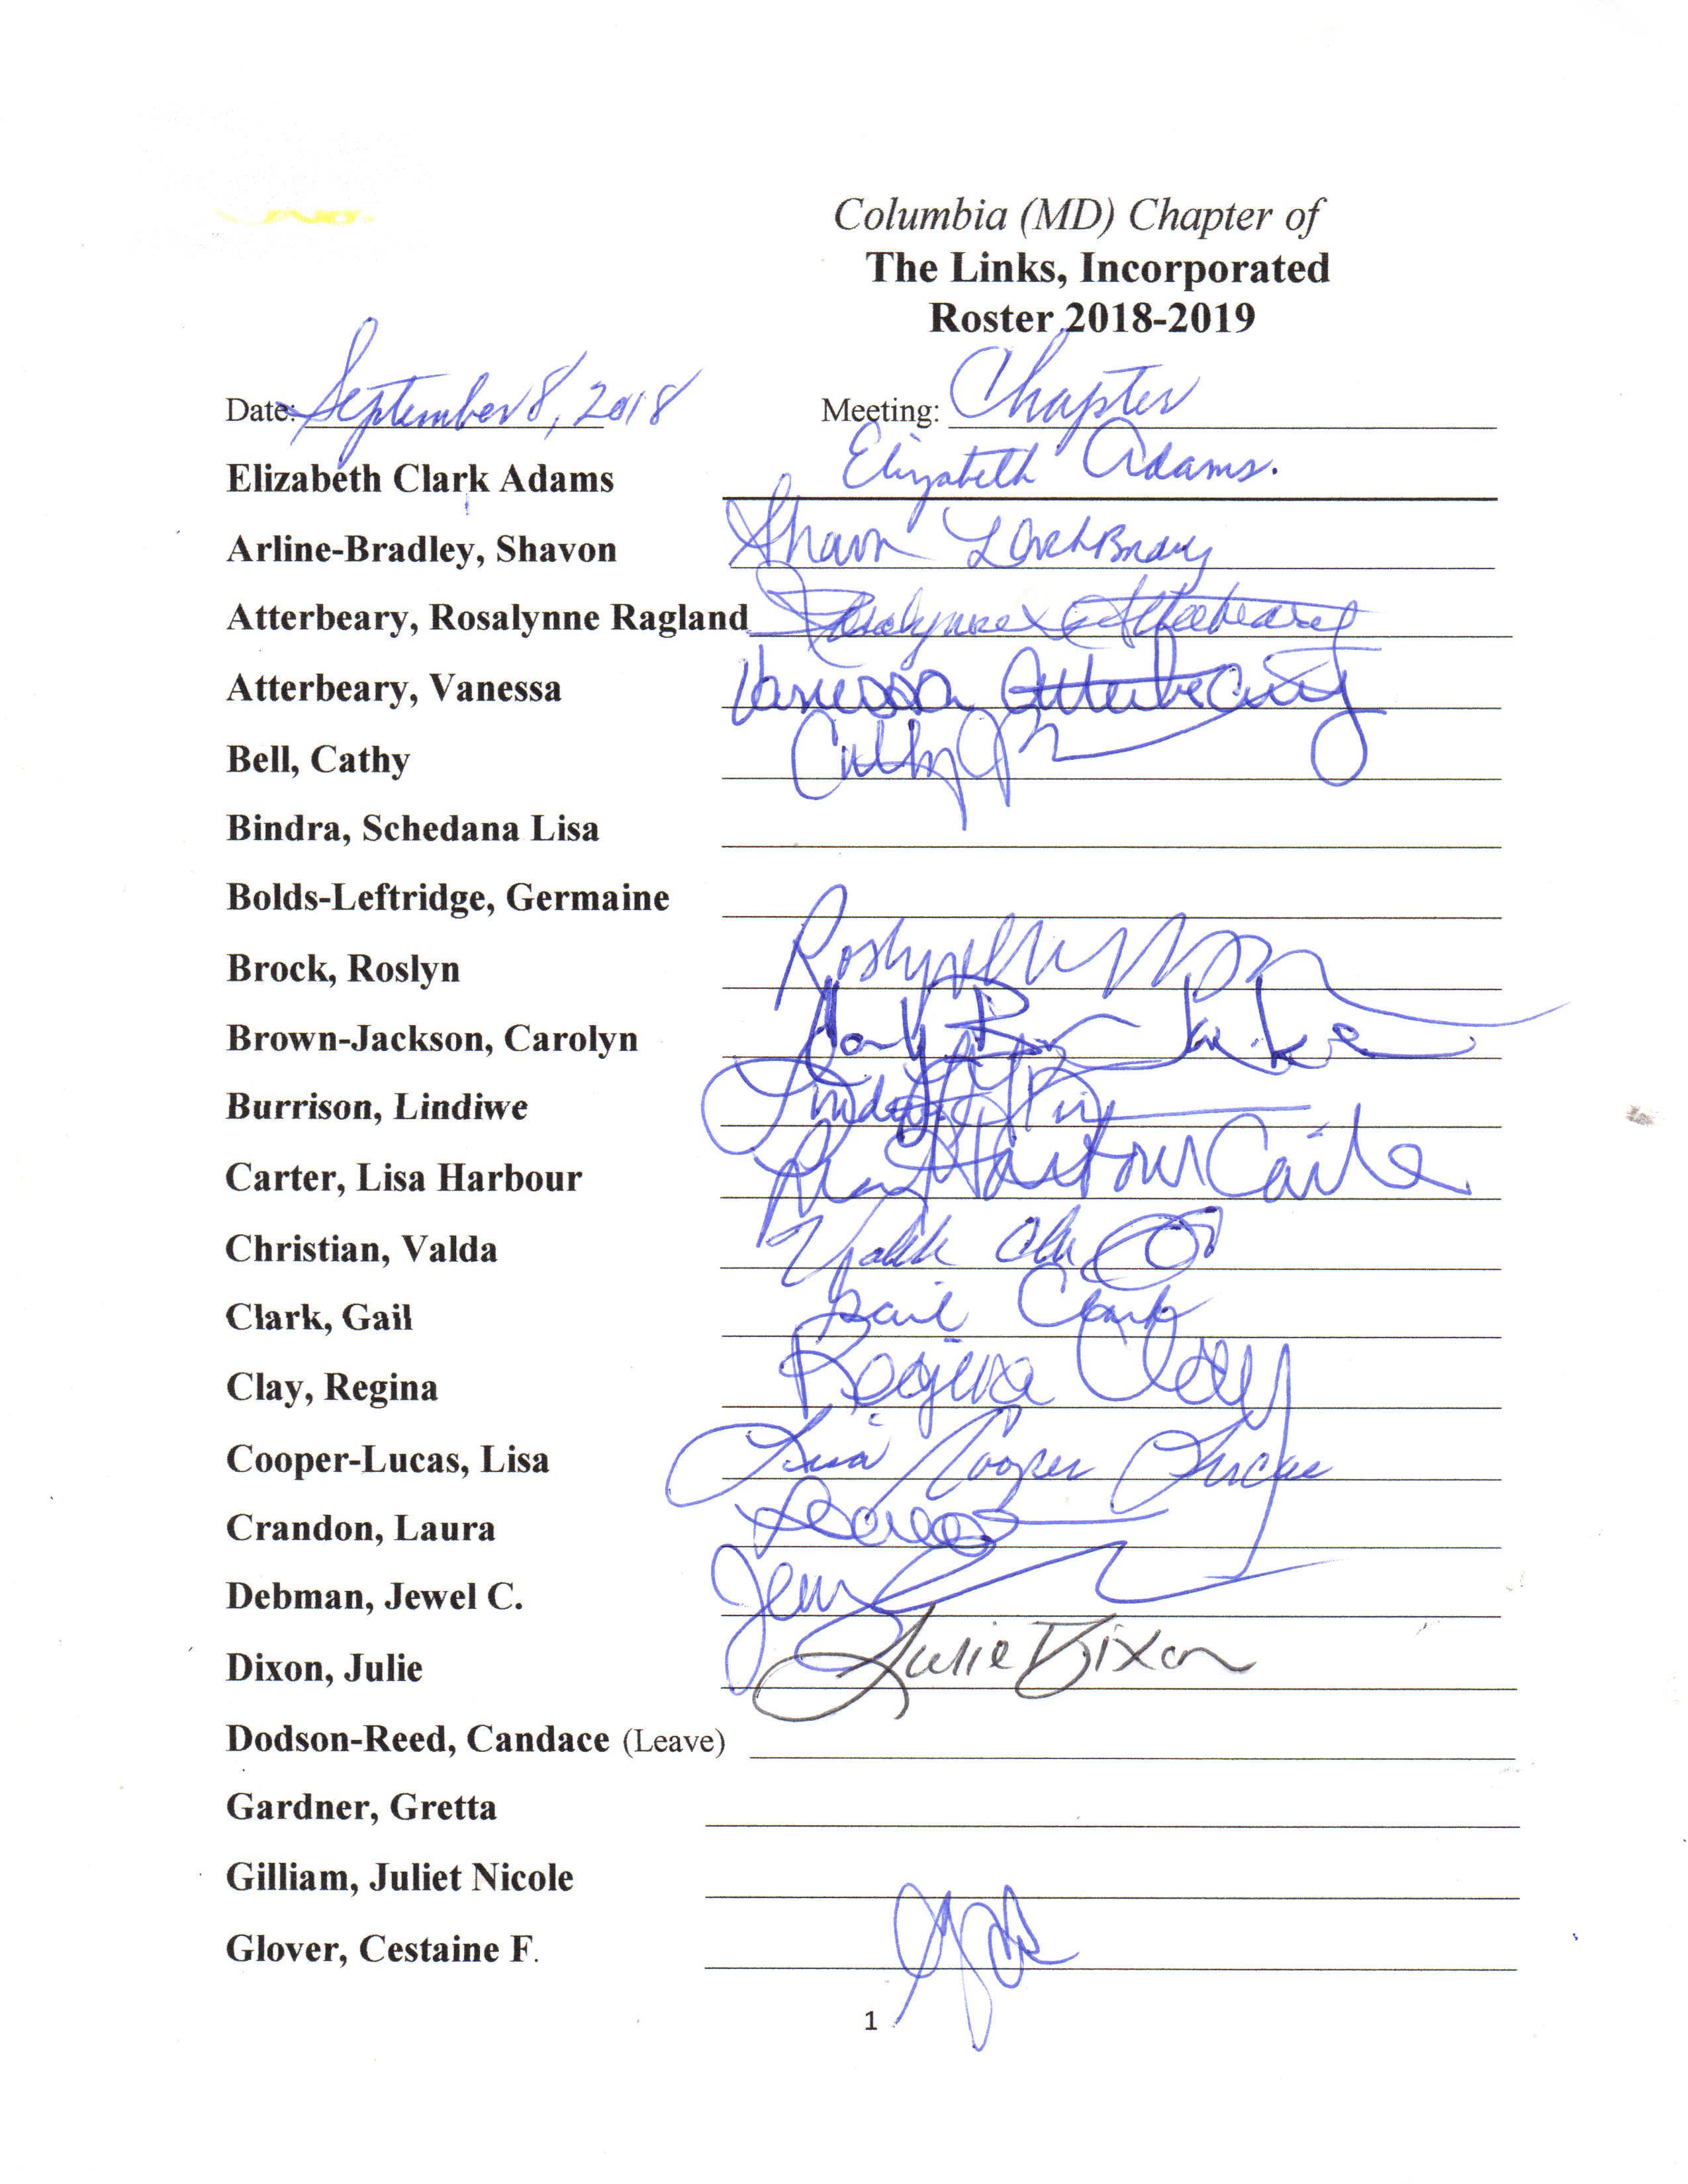 Columbia (MD) Chapter of
The Links, Incorporated
Roster 2018-2019
Date: September 8, 2018 Meeting: Chapter
Elizabeth Clark Adams Elizabeth Adams.
Arline-Bradley, Shavon
Atterbeary, Rosalynne Ragland Rosalynne Atterbeary
Atterbeary, Vanessa Vanessa Atterbeary
Bell, Cathy Cathy
Bindra, Schedana Lisa
Bolds-Leftridge, Germaine
Brock, Roslyn Roslyn
Brown-Jackson, Carolyn
Burrison, Lindiwe
Carter, Lisa Harbour Lisa Harbour Carter
Christian, Valda
Clark, Gail Gail Clark
Clay, Regina Regina Clay
Cooper-Lucas, Lisa Lisa Cooper Lucas
Crandon, Laura
Debman, Jewel C.
Dixon, Julie Julie Dixon
Dodson-Reed, Candace (Leave)
Gardner, Gretta
Gilliam, Juliet Nicole
Glover, Cestaine F.
1